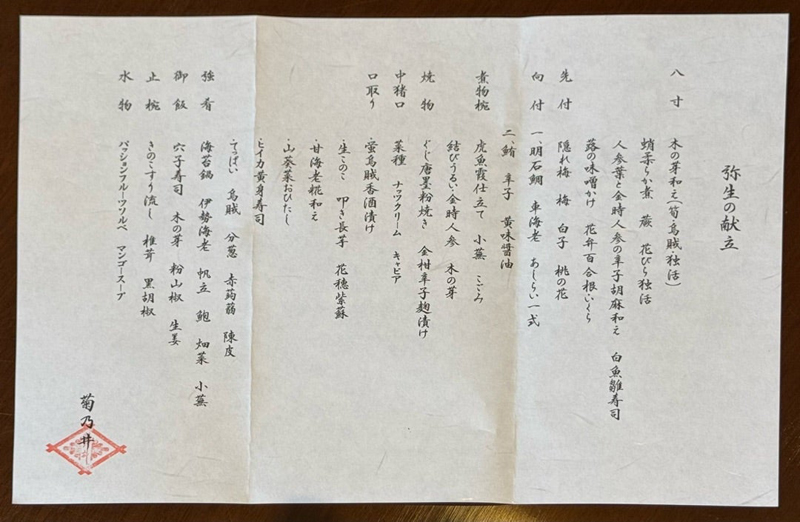 弥生の献立
八寸 木の芽和え(筍・烏賊 独活)
蛸柔らか煮 蕨 花びら独活
人参葉と金時人参の辛子胡麻和え 白魚雛寿司
蕗の味噌かけ 花弁百合根 いくら
先付 隠れ梅 梅 白子 桃の花
向付 一、明石鯛 車海老 あしらい一式
二、鮪 辛子 黄味醤油
煮物椀 虎魚霞仕立て 小蕪 こごみ
結びうるい・金時人参 木の芽
焼物 ぐじ唐墨粉焼き 金柑辛子麹漬け
中猪口 菜種 ナッツクリーム キャビア
口取り ・蛍烏賊香酒漬け
・生このこ 叩き長芋 花穂紫蘇
・甘海老糀和え
・山葵菜おひたし
・ヒイカ黄身寿司
・てっぱい 烏賊 分葱 赤蒟蒻 陳皮
強肴 海苔鍋 伊勢海老 帆立 鮑 畑菜 小蕪
御飯 穴子寿司 木の芽 粉山椒 生姜
止椀 きのこすり流し 椎茸 黒胡椒
水物 パッションフルーツソルベ マンゴースープ
菊乃井